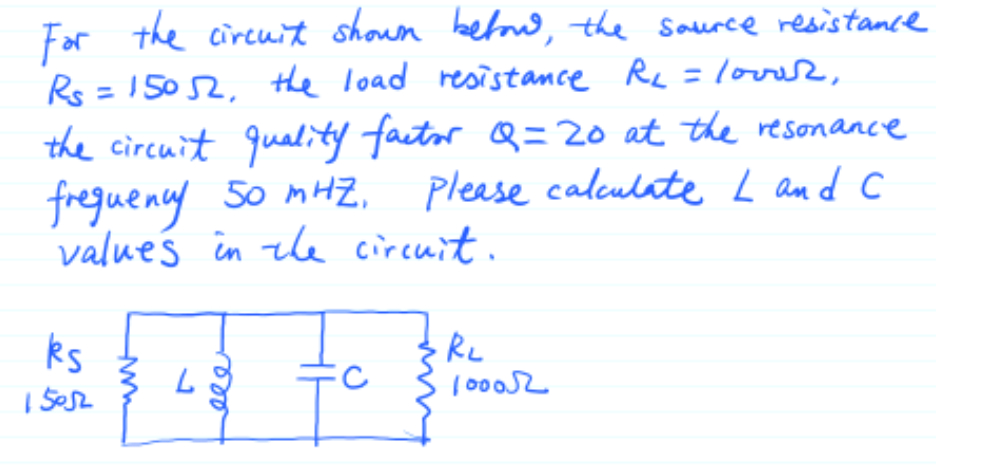 For the circuit shown below, the source resistance
Rs = 150 Ω, the load resistance RL = 1000Ω,
the circuit quality factor Q = 20 at the resonance
frequency 50 mHZ. Please calculate L and C
values in the circuit.
Rs
150Ω
L
C
RL
1000Ω